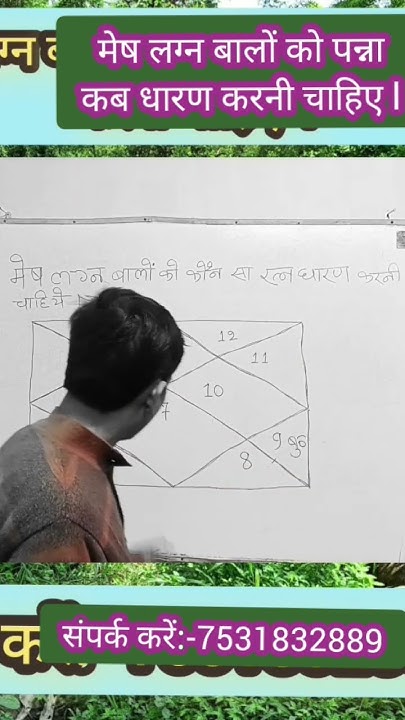 मेष लग्न बालों को पन्ना
कब धारण करनी चाहिए।
मेष लग्न बालों को कौन सा रत्न धारण करनी
चाहिये
12
11
10
7
9 बुध
8
संपर्क करें:-7531832889